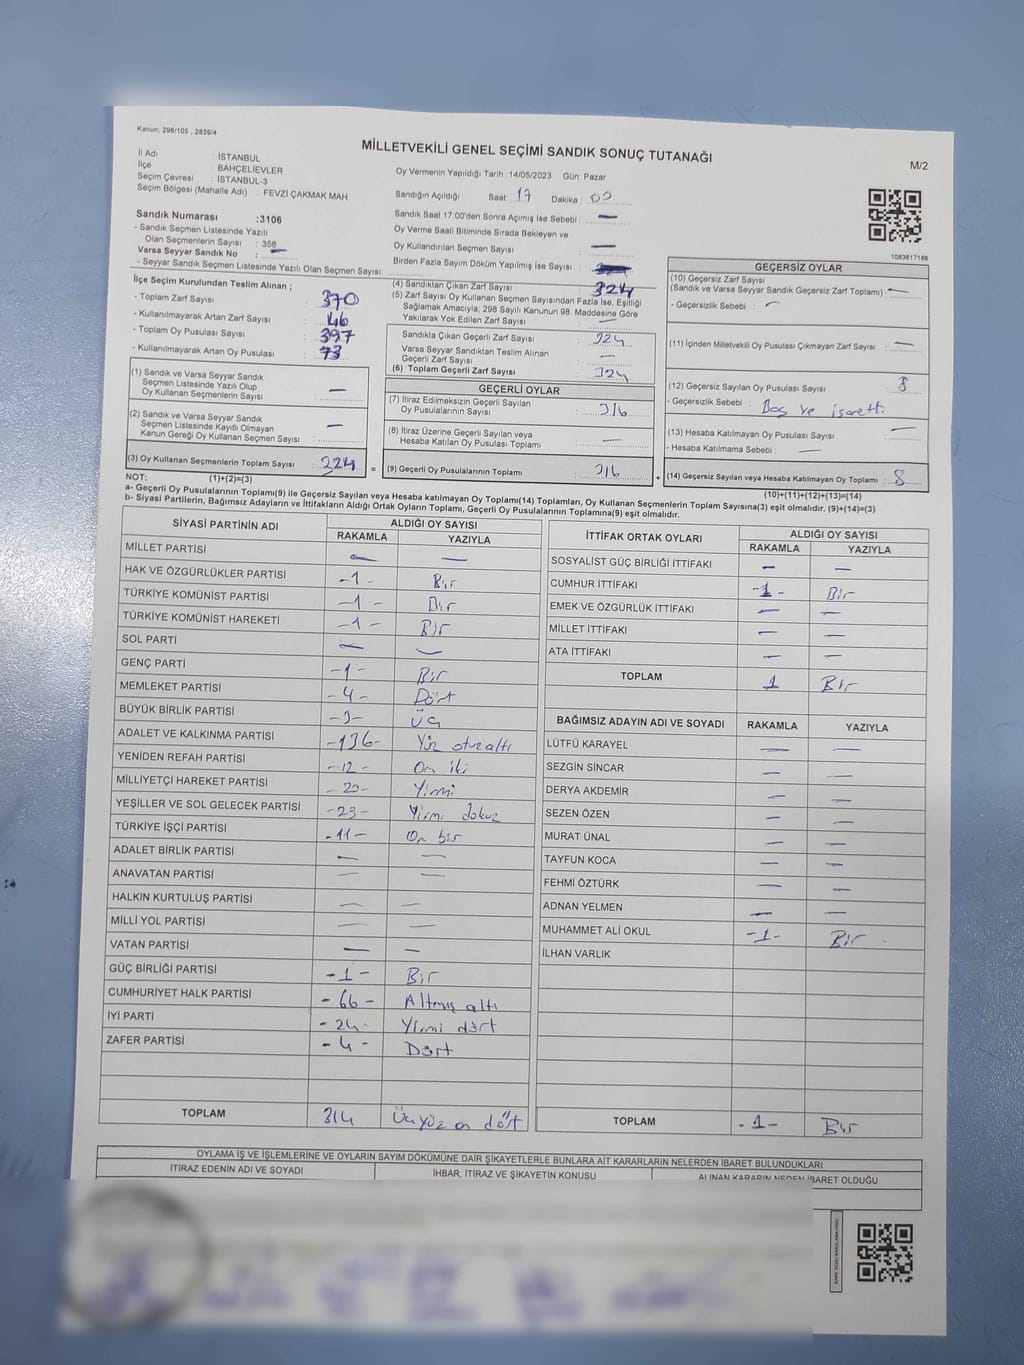 Kanun; 298/105 , 2839/4
MİLLETVEKİLİ GENEL SEÇİMİ SANDIK SONUÇ TUTANAĞI
M/2
İl Adı : İSTANBUL
İlçe : BAHÇELİEVLER
Seçim Çevresi : İSTANBUL-3
Seçim Bölgesi (Mahalle Adı) : FEVZİ ÇAKMAK MAH.
Oy Vermenin Yapıldığı Tarih :14/05/2023 Gün: Pazar
Sandığın Açıldığı Saat: 17 Dakika: 00
Sandık Numarası :3106
- Sandık Seçmen Listesinde Yazılı
Olan Seçmenlerin Sayısı : 356
Varsa Seyyar Sandık No : —
- Seyyar Sandık Seçmen Listesinde Yazılı Olan Seçmen Sayısı:
Sandık Saat 17:00'den Sonra Açımış İse Sebebi : —
Oy Verme Saati Bitiminde Sırada Bekleyen ve
Oy Kullandırılan Seçmen Sayısı : —
Birden Fazla Sayım Döküm Yapılmış İse Sayısı :
1083617186
İlçe Seçim Kurulundan Teslim Alınan ;
- Toplam Zarf Sayısı : 370
- Kullanılmayarak Artan Zarf Sayısı : 46
- Toplam Oy Pusulası Sayısı : 397
- Kullanılmayarak Artan Oy Pusulası : 73
(1) Sandık ve Varsa Seyyar Sandık
Seçmen Listesinde Yazılı Olup
Oy Kullanan Seçmenlerin Sayısı : —
(2) Sandık ve Varsa Seyyar Sandık
Seçmen Listesinde Kayıtlı Olmayan
Kanun Gereği Oy Kullanan Seçmen Sayısı : —
(3) Oy Kullanan Seçmenlerin Toplam Sayısı : 324 =
(4) Sandıktan Çıkan Zarf Sayısı : 324
(5) Zarf Sayısı Oy Kullanan Seçmen Sayısından Fazla İse, Eşitliği
Sağlamak Amacıyla; 298 Sayılı Kanunun 98. Maddesine Göre
Yakılarak Yok Edilen Zarf Sayısı : —
Sandıkta Çıkan Geçerli Zarf Sayısı : 324
Varsa Seyyar Sandıktan Teslim Alınan
Geçerli Zarf Sayısı : —
(6) Toplam Geçerli Zarf Sayısı : 324
GEÇERLİ OYLAR
(7) İtiraz Edilmeksizin Geçerli Sayılan
Oy Pusulalarının Sayısı : 316
(8) İtiraz Üzerine Geçerli Sayılan veya
Hesaba Katılan Oy Pusulası Toplamı : —
(9) Geçerli Oy Pusulalarının Toplamı : 316 +
GEÇERSİZ OYLAR
(10) Geçersiz Zarf Sayısı
(Sandık ve Varsa Seyyar Sandık Geçersiz Zarf Toplamı) : —
- Geçersizlik Sebebi : —
(11) İçinden Milletvekili Oy Pusulası Çıkmayan Zarf Sayısı : —
(12) Geçersiz Sayılan Oy Pusulası Sayısı : 8
- Geçersizlik Sebebi : Boş ve işaretli
(13) Hesaba Katılmayan Oy Pusulası Sayısı : —
- Hesaba Katılmama Sebebi : —
(14) Geçersiz Sayılan veya Hesaba Katılmayan Oy Toplamı : 8
NOT: (1)+(2)=(3)
(10)+(11)+(12)+(13)=(14)
a- Geçerli Oy Pusulalarının Toplamı(9) ile Geçersiz Sayılan veya Hesaba katılmayan Oy Toplamı(14) Toplamları, Oy Kullanan Seçmenlerin Toplam Sayısına(3) eşit olmalıdır. (9)+(14)=(3)
b- Siyasi Partilerin, Bağımsız Adayların ve İttifakların Aldığı Ortak Oyların Toplamı, Geçerli Oy Pusulalarının Toplamına(9) eşit olmalıdır.
SİYASİ PARTİNİN ADI ALDIĞI OY SAYISI
RAKAMLA YAZIYLA
MİLLET PARTİSİ — —
HAK VE ÖZGÜRLÜKLER PARTİSİ -1- Bir
TÜRKİYE KOMÜNİST PARTİSİ -1- Bir
TÜRKİYE KOMÜNİST HAREKETİ -1- Bir
SOL PARTİ — —
GENÇ PARTİ -1- Bir
MEMLEKET PARTİSİ -4- Dört
BÜYÜK BİRLİK PARTİSİ -3- Üç
ADALET VE KALKINMA PARTİSİ -136- Yüz otuz altı
YENİDEN REFAH PARTİSİ -12- On iki
MİLLİYETÇİ HAREKET PARTİSİ -20- Yirmi
YEŞİLLER VE SOL GELECEK PARTİSİ -29- Yirmi dokuz
TÜRKİYE İŞÇİ PARTİSİ -11- On bir
ADALET BİRLİK PARTİSİ — —
ANAVATAN PARTİSİ — —
HALKIN KURTULUŞ PARTİSİ — —
MİLLİ YOL PARTİSİ — —
VATAN PARTİSİ — —
GÜÇ BİRLİĞİ PARTİSİ -1- Bir
CUMHURİYET HALK PARTİSİ -66- Altmış altı
İYİ PARTİ -24- Yirmi dört
ZAFER PARTİSİ -4- Dört
TOPLAM 314 Üçyüz on dört
İTTİFAK ORTAK OYLARI ALDIĞI OY SAYISI
RAKAMLA YAZIYLA
SOSYALİST GÜÇ BİRLİĞİ İTTİFAKI — —
CUMHUR İTTİFAKI -1- Bir
EMEK VE ÖZGÜRLÜK İTTİFAKI — —
MİLLET İTTİFAKI — —
ATA İTTİFAKI — —
TOPLAM 1 Bir
BAĞIMSIZ ADAYIN ADI VE SOYADI RAKAMLA YAZIYLA
LÜTFÜ KARAYEL — —
SEZGİN SİNCAR — —
DERYA AKDEMİR — —
SEZEN ÖZEN — —
MURAT ÜNAL — —
TAYFUN KOCA — —
FEHMİ ÖZTÜRK — —
ADNAN YELMEN — —
MUHAMMET ALİ OKUL -1- Bir
İLHAN VARLIK
TOPLAM -1- Bir
OYLAMA İŞ VE İŞLEMLERİNE VE OYLARIN SAYIM DÖKÜMÜNE DAİR ŞİKAYETLERLE BUNLARA AİT KARARLARIN NELERDEN İBARET BULUNDUKLARI
İTİRAZ EDENİN ADI VE SOYADI İHBAR, İTİRAZ VE ŞİKAYETİN KONUSU ALINAN KARARIN NEDEN İBARET OLDUĞU